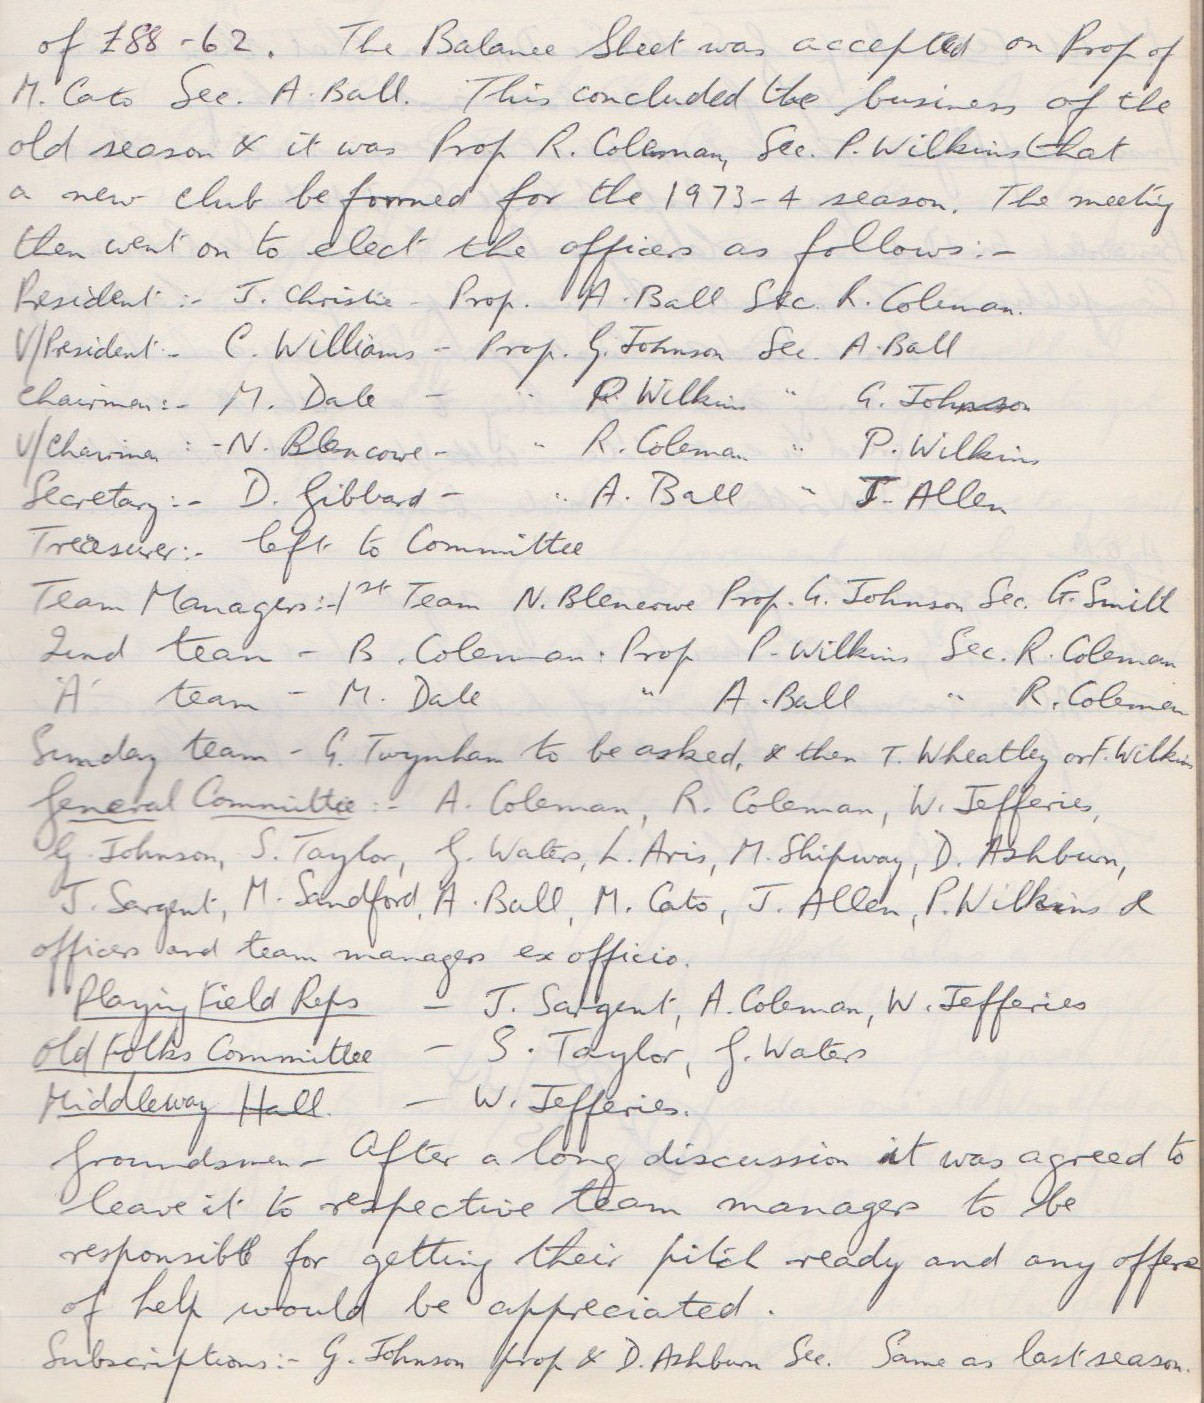 of £88-62. The Balance Sheet was accepted on Prop of
M. Cato Sec. A. Ball. This concluded the business of the
old season & it was Prop R. Coleman, Sec. P. Wilkins that
a new club be formed for the 1973-4 season. The meeting
then went on to elect the officers as follows:-
President:- J. Christie - Prop. A. Ball Sec. R. Coleman.
V/President:- C. Williams - Prop. G. Johnson Sec. A. Ball
Chairman:- M. Dale - " P. Wilkins " G. Johnson
V/Chairman:- N. Blencowe - " R. Coleman " P. Wilkins
Secretary:- D. Gibbard - " A. Ball " J. Allen
Treasurer:- left to Committee
Team Managers:- 1st Team N. Blencowe Prop. G. Johnson Sec. G. Smith
2nd team - B. Coleman. Prop P. Wilkins Sec. R. Coleman
'A' team - M. Dale " A. Ball " R. Coleman
Sunday team - G. Twynham to be asked, & then T. Wheatley or F. Wilkins
General Committee:- A. Coleman, R. Coleman, W. Jefferies,
G. Johnson, S. Taylor, G. Waters, L. Aris, M. Shipway, D. Ashburn,
J. Sargent, M. Sandford, A. Ball, M. Cato, J. Allen, P. Wilkins &
officers and team managers ex officio.
Playing Field Reps - J. Sargent, A. Coleman, W. Jefferies
Old Folks Committee - S. Taylor, G. Waters
Middleway Hall. - W. Jefferies.
Groundsmen - After a long discussion it was agreed to
leave it to respective team managers to be
responsible for getting their pitch ready and any offers
of help would be appreciated.
Subscriptions:- G. Johnson prop & D. Ashburn Sec. Same as last season.